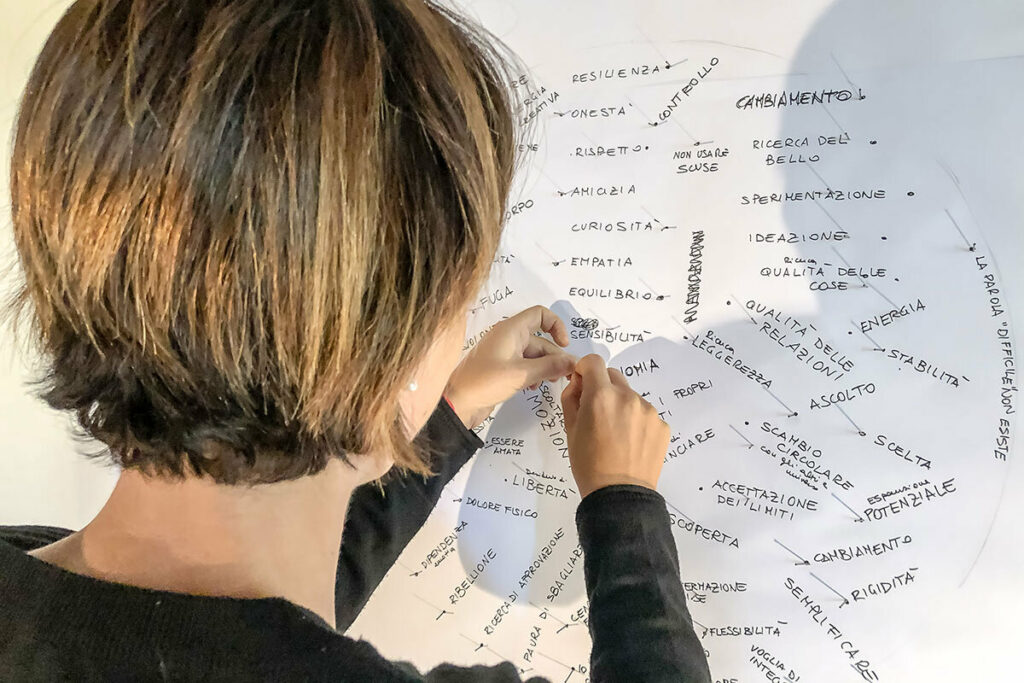 RESILIENZA
CONTROLLO
ONESTA'
RISPETTO
NON USARE
SCUSE
AMICIZIA
CURIOSITA'
EMPATIA
EQUILIBRIO
SENSIBILITA'
CAMBIAMENTO
RICERCA DEL
BELLO
SPERIMENTAZIONE
IDEAZIONE
Ricerca
QUALITA' DELLE
COSE
ENERGIA
STABILITA'
LA PAROLA "DIFFICILE" NON ESISTE
QUALITA' DELLE
RELAZIONI
Ricerca
LEGGEREZZA
ASCOLTO
SCELTA
SCAMBIO
CIRCOLARE
con gli altri
universo
ESPANSIONE
POTENZIALE
ACCETTAZIONE
DEI LIMITI
CAMBIAMENTO
RIGIDITA'
SEMPLIFICARE
FUGA
PROPRI
ESSERE
AMATA
LIBERTA'
DOLORE FISICO
DIPENDENZA
RIBELLIONE
RICERCA DI APPROVAZIONE
PAURA DI SBAGLIARE
SCOPERTA
FLESSIBILITA'
VOGLIA DI